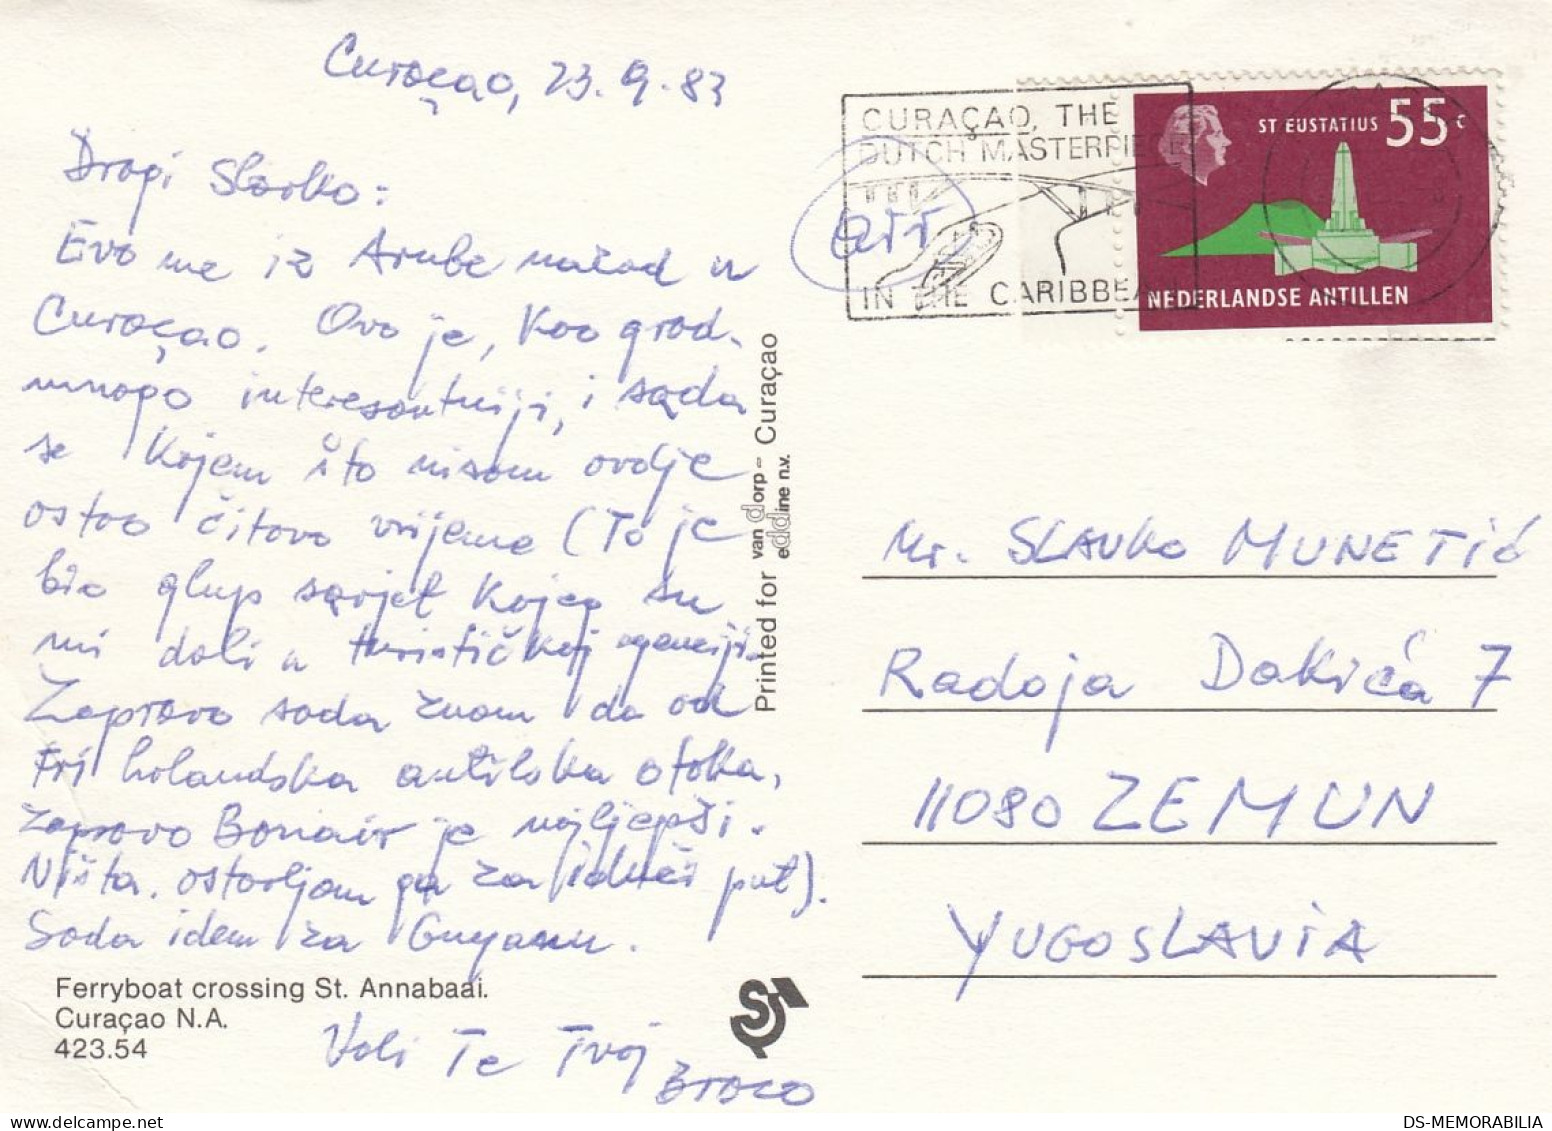 Curaçao, 23.9.83
Dragi Slavko:
Evo me iz Arube natrag u
Curaçao. Ovo je, kao grad,
mnogo interesantniji, i sada
se kajem što nisam ovdje
ostao čitavo vrijeme (To je
bio glup savjet kojeg su
mi dali u turističkoj agenciji.
Zapravo sada znam da od
tri holandska antilska otoka,
zapravo Bonair je najljepši.
Ništa. ostavljam ga za idući put).
Sada idem za Guyanu.
Voli Te Tvoj
Braco
Ferryboat crossing St. Annabaai.
Curaçao N.A.
423.54
Printed for van dorp-eddine n.v. Curaçao
CURAÇAO, THE
DUTCH MASTERPIECE
IN THE CARIBBEA
air
ST EUSTATIUS 55 c
NEDERLANDSE ANTILLEN
Mr. SLAVKO MUNETIĆ
Radoja Dakića 7
11080 ZEMUN
YUGOSLAVIA
DS-MEMORABILIA